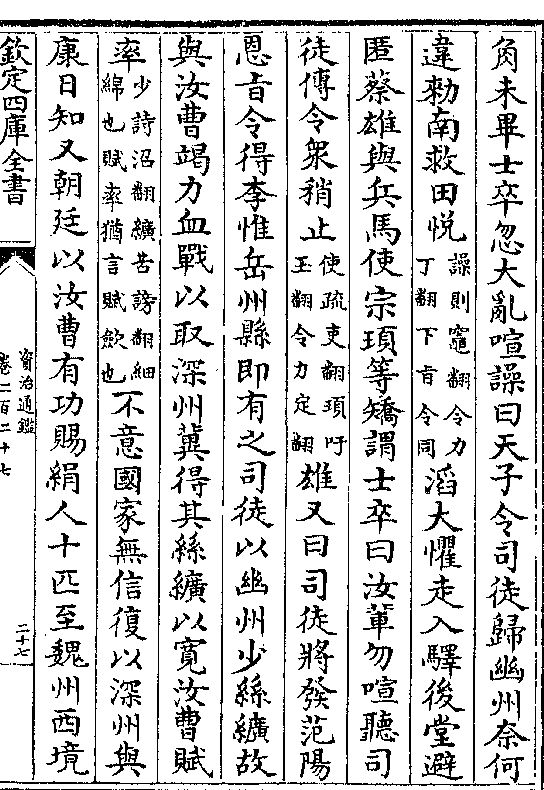 角未畢士卒忽大亂喧譟曰天子令司徒歸幽州奈何
違勑南救田悅譟則竈翻令力丁翻下旨令同滔大懼走入驛後堂避
匿蔡雄與兵馬使宗頊等矯謂士卒曰汝軰勿喧聽司
徒傳令衆稍止使疏吏翻頊吁玉翻令力定翻雄又曰司徒將發范陽
恩旨令得李惟岳州縣即有之司徒以幽州少絲纊故
與汝曹竭力血戰以取深州冀得其絲纊以寛汝曹賦
率少詩沼翻纊苦謗翻細綿也賦率猶言賦歛也不意國家無信復以深州與
康日知又朝廷以汝曹有功賜絹人十匹至魏州西境
欽定四庫全書
資治通鑑
卷二百二十七
二十七